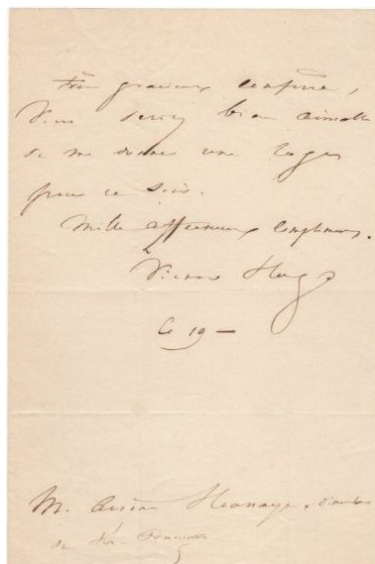 Mon gracieux confrère,
Vous seriez bien aimable
de me donner une loge
pour ce soir.
Mille affectueux compliments.
Victor Hugo
Ce 19 —
M. Arsène Houssaye, directeur
du Th. Français